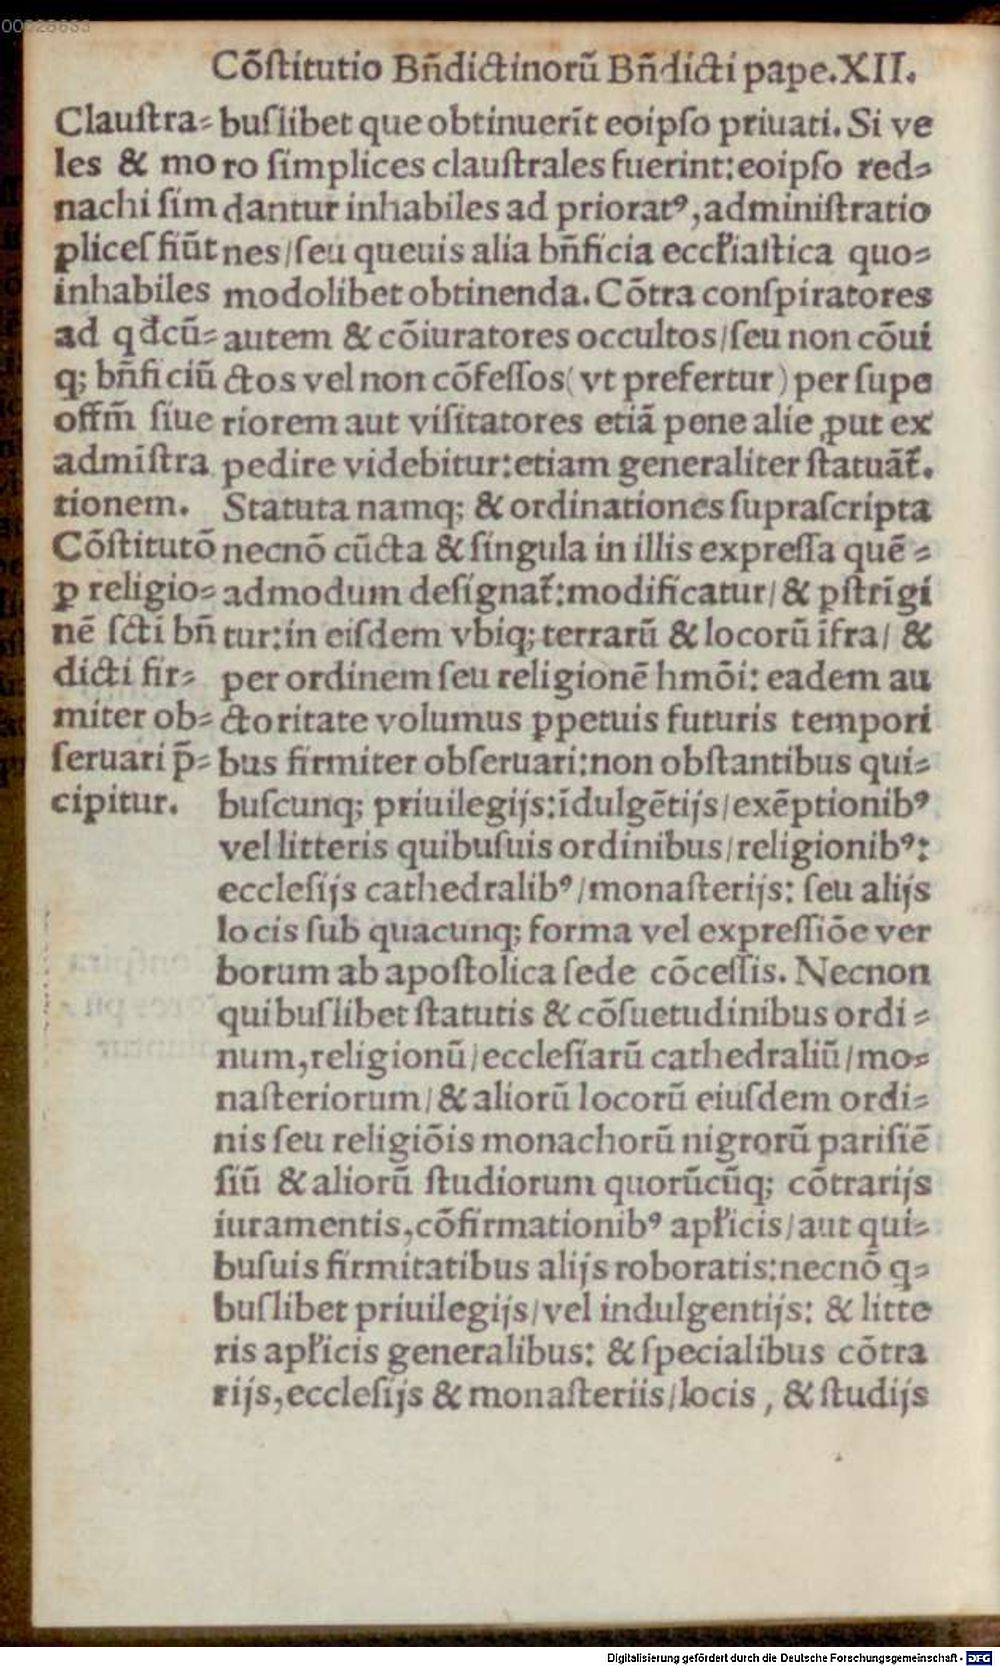 00028683
Cõſtitutio Bñdictinorũ Bñdicti pape.XII.
Clauſtra⸗
les & mo
nachi ſim
pliceſ fiũt
inhabiles
ad qđcũ⸗
q; bñficiũ
offm̃ ſiue
admĩſtra
tionem.
Cõſtitutõ
ꝑ religio⸗
nẽ ſcti bñ
dicti fir⸗
miter ob⸗
ſeruari p̃⸗
cipitur.
buſlibet que obtinuerĩt eoipſo priuati. Si ve
ro ſimplices clauſtrales fuerint:eoipſo red⸗
dantur inhabiles ad priorat⁹,adminiſtratio
nes/ſeu queuis alia bñficia eccł̓iaſtica quo⸗
modolibet obtinenda. Cõtra conſpiratores
autem & cõiuratores occultos/ſeu non cõui
ctos vel non cõfeſſos(vt prefertur)per ſupe
riorem aut viſitatores etiã pene alie ꝓut ex
pedire videbitur:etiam generaliter ſtatuãt̃.
Statuta namq; & ordinationes ſupraſcripta
necnõ cũcta & ſingula in illis expreſſa quẽ⸗
admodum deſignat̃:modificatur/& pſtrĩgi
tur:in eiſdem vbiq; terrarũ & locorũ ĩfra/ &
per ordinem ſeu religionẽ hmõi: eadem au
ctoritate volumus ꝑpetuis futuris tempori
bus firmiter obſeruari:non obſtantibus qui⸗
buſcunq; priuilegijs:ĩdulgẽtijs/exẽptionib⁹
vel litteris quibuſuis ordinibus/religionib⁹:
eccleſijs cathedralib⁹/monaſterijs: ſeu alijs
locis ſub quacunq; forma vel expreſſiõe ver
borum ab apoſtolica ſede cõceſſis. Necnon
quibuſlibet ſtatutis & cõſuetudinibus ordi⸗
num,religionũ/eccleſiarũ cathedraliũ/mo⸗
naſteriorum/& aliorũ locorũ eiuſdem ordi⸗
nis ſeu religiõis monachorũ nigrorũ pariſiẽ
ſiũ & aliorũ ſtudiorum quorũcũq; cõtrarijs
iuramentis,cõfirmationib⁹ apł̓icis/aut qui⸗
buſuis firmitatibus alijs roboratis:necnõ q⸗
buſlibet priuilegijs/vel indulgentijs: & litte
ris apł̓icis generalibus: & ſpecialibus cõtra
rijs,eccleſijs & monaſteriis/locis, & ſtudijs
Digitalisierung gefördert durch die Deutsche Forschungsgemeinschaft - DFG